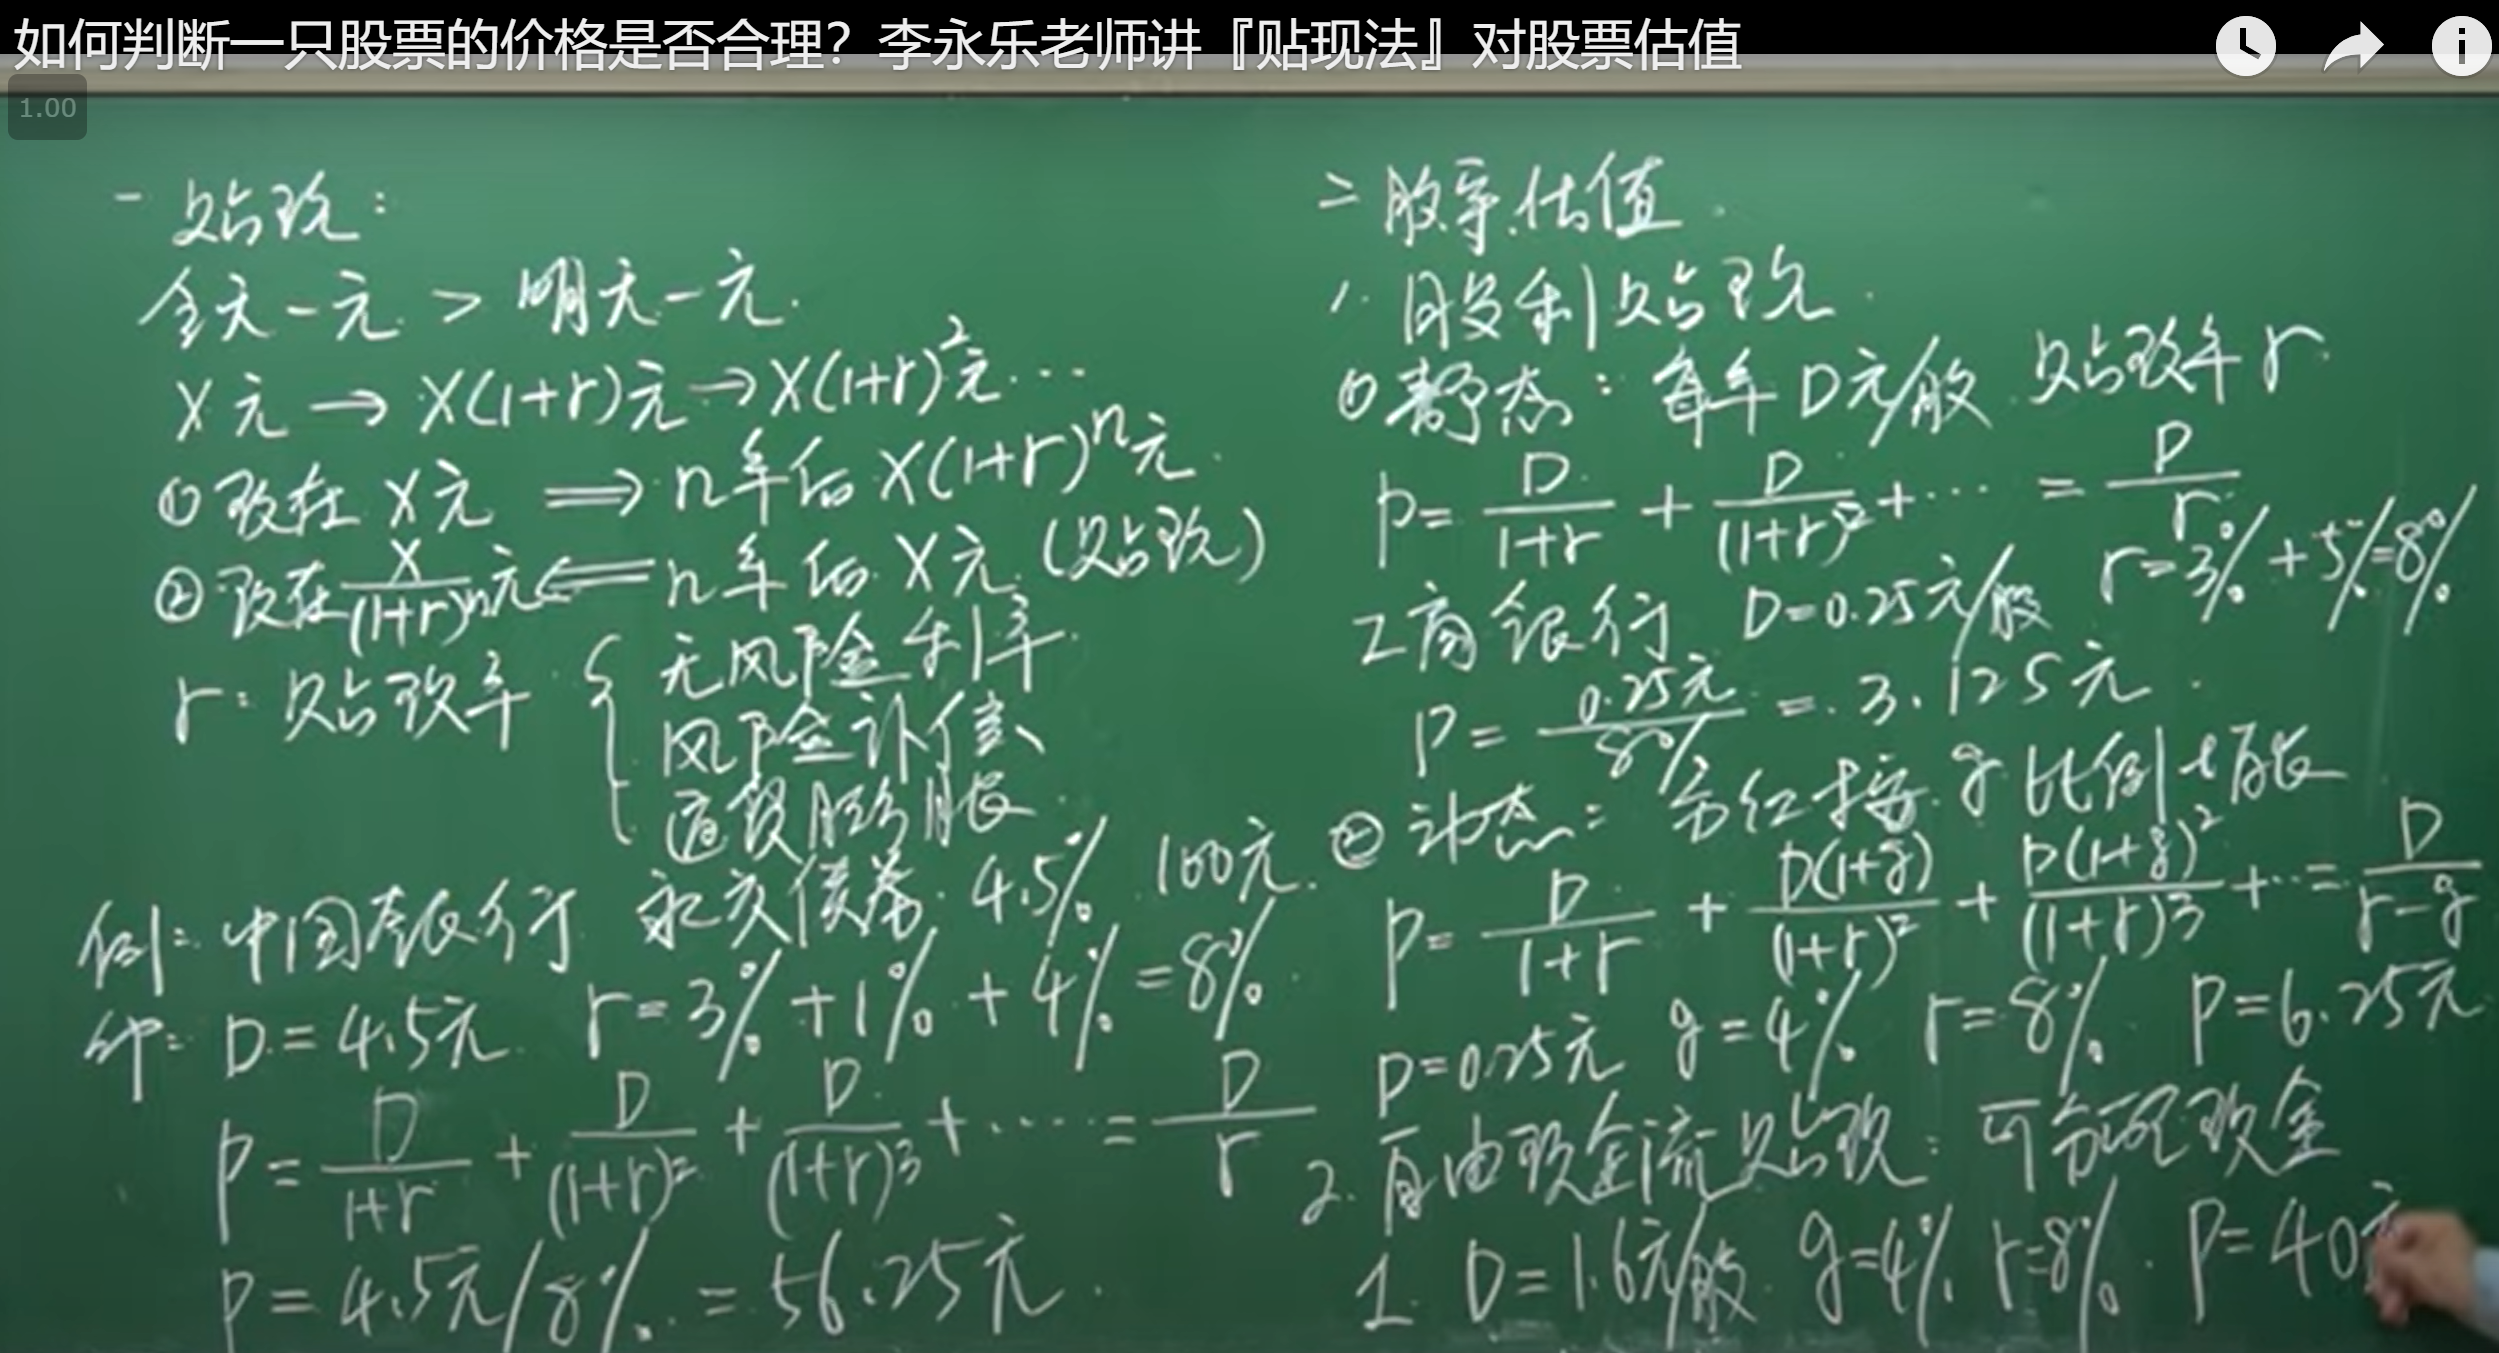 如何判断一只股票的价格是否合理？李永乐老师讲『贴现法』对股票估值
1.00
一 贴现:
今天一元 > 明天一元.
X元 → X(1+r)元 → X(1+r)²元…
① 现在 X元 ⟹ n年后 X(1+r)ⁿ元.
② 现在 X/(1+r)ⁿ元 ⟸ n年后 X元 (贴现)
r: 贴现率 { 无风险利率
风险补偿
通货膨胀
例: 中国银行 永久债券 4.5% 100元.
D = 4.5元 r = 3% + 1% + 4% = 8%
P = D/(1+r) + D/(1+r)² + D/(1+r)³ + … = D/r
P = 4.5元/8% = 56.25元.
二 股票估值
1. 股利贴现
① 静态: 每年D元/股 贴现率 r
P = D/(1+r) + D/(1+r)² + … = D/r
r = 3% + 5% = 8%
工商银行 D = 0.25元/股
P = 0.25元/8% = 3.125元
② 动态: 分红按 g 比例增长
P = D/(1+r) + D(1+g)/(1+r)² + D(1+g)²/(1+r)³ + … = D/(r-g)
D = 0.25元 g = 4% r = 8% P = 6.25元
2. 自由现金流贴现: 可分配现金
工 D = 1.6元/股 g = 4% r = 8% P = 40元